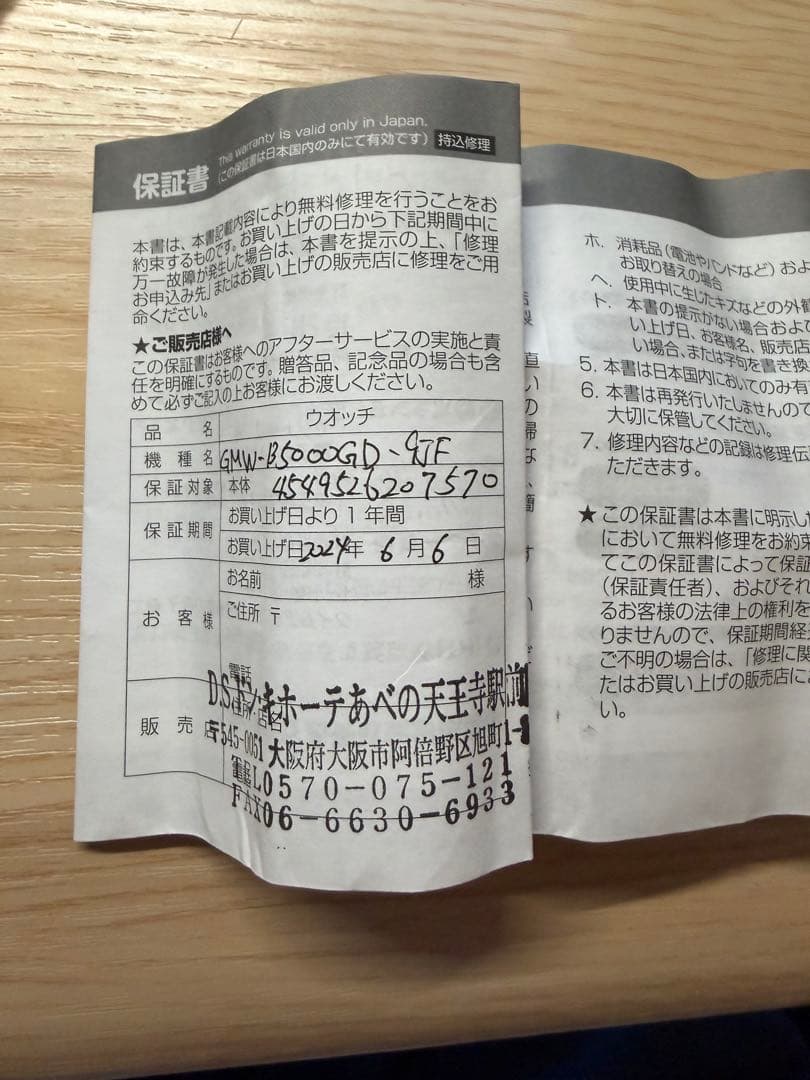 保証書
This warranty is valid only in Japan.
(この保証書は日本国内のみにて有効です)
持込修理
本書は、本書記載内容により無料修理を行うことをお
約束するものです。お買い上げの日から下記期間中に
万一故障が発生した場合は、本書を提示の上、「修理
お申込み先」またはお買い上げの販売店に修理をご用
命ください。
★ご販売店様へ
この保証書はお客様へのアフターサービスの実施と責
任を明確にするものです。贈答品、記念品の場合も含
めて必ずご記入の上お客様にお渡しください。
品名 ウオッチ
機種名 GMW-B5000GD-9JF
保証対象 本体 4549526207570
保証期間 お買い上げ日より1年間
お買い上げ日 2024年 6月 6日
お客様 お名前 様
ご住所 〒
電話
販売店
D.S.ドン.キホーテあべの天王寺駅前
〒545-0051 大阪府大阪市阿倍野区旭町1-
TEL0570-075-121
FAX06-6630-6933
ホ. 消耗品(電池やバンドなど)およ
お取り替えの場合
ヘ. 使用中に生じたキズなどの外観
ト. 本書の提示がない場合および
い上げ日、お客様名、販売店
い場合、または字句を書き換
5. 本書は日本国内においてのみ有
6. 本書は再発行いたしませんので
大切に保管してください。
7. 修理内容などの記録は修理伝
ただきます。
★この保証書は本書に明示した
において無料修理をお約束
てこの保証書によって保証
(保証責任者)、およびそれ
るお客様の法律上の権利を
りませんので、保証期間経
ご不明の場合は、「修理に関
たはお買い上げの販売店に
い。